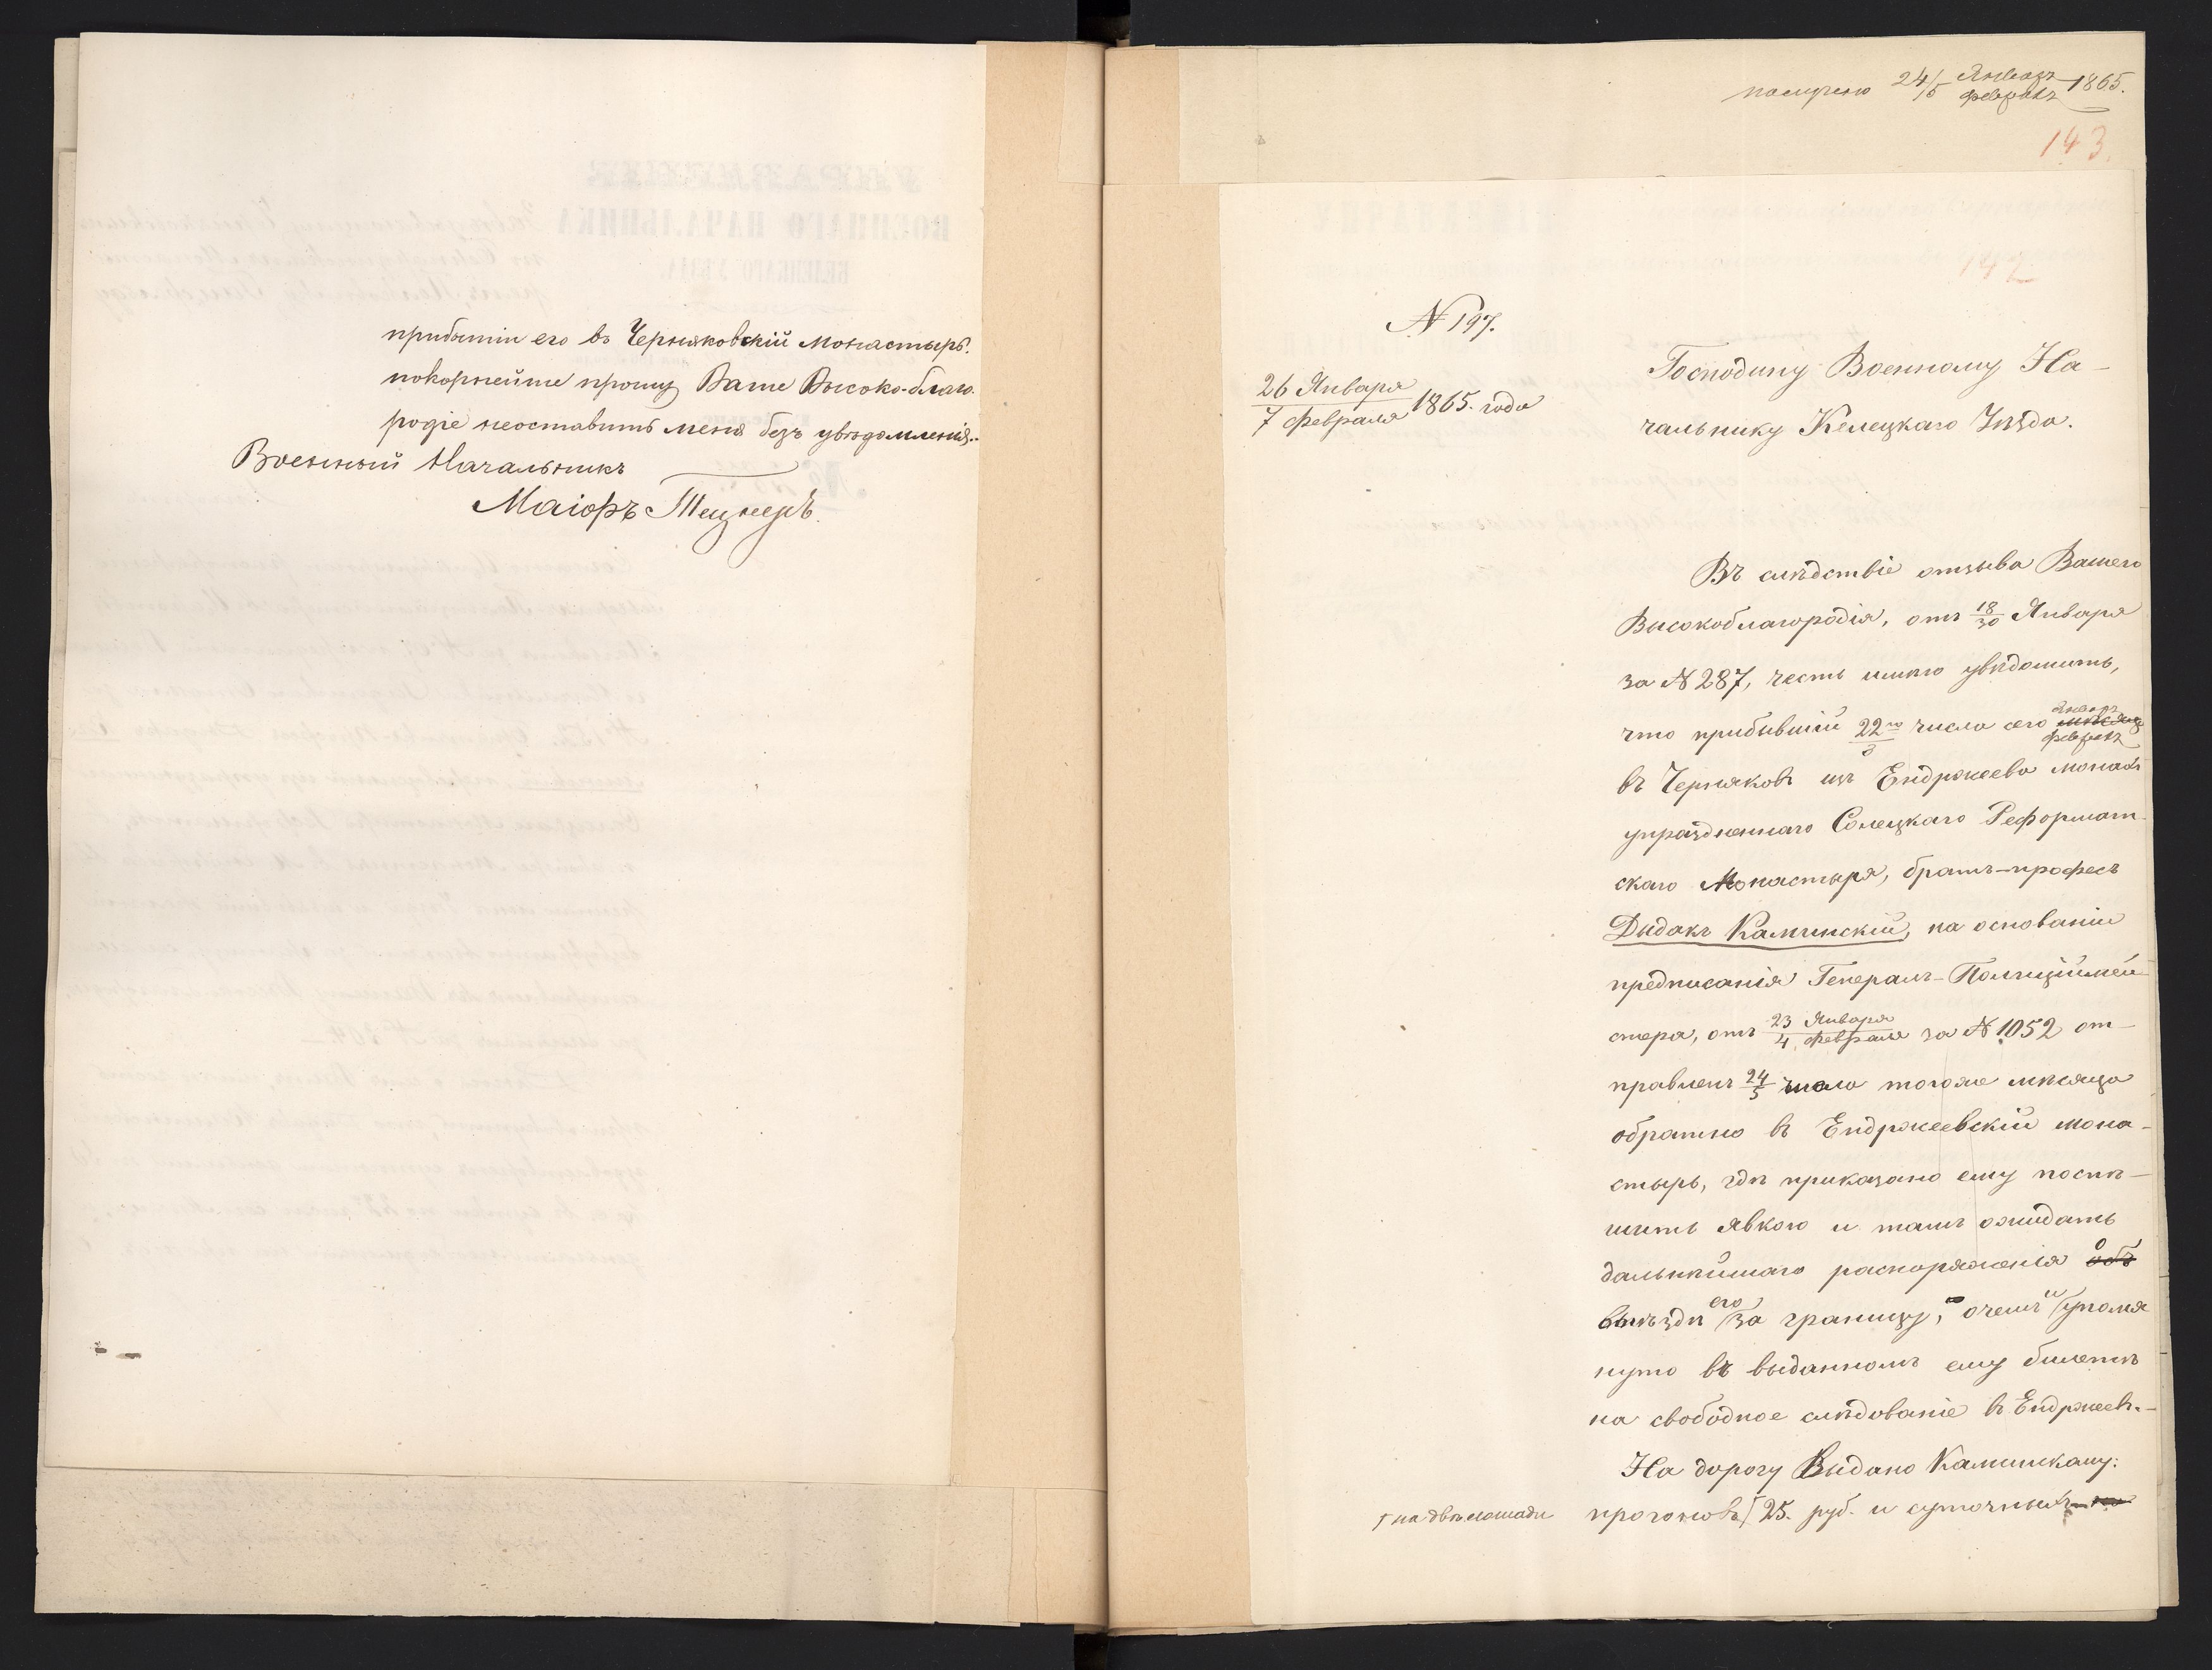 прибытіи его въ Черняковскій монастырь.
покорнейше прошу Ваше Высоко-благо-
родіе неоставить меня безъ увѣдомленія.
Военный Начальникъ
Маіоръ
получено 24/5 Январ 1865.
Феврал
143.
142
N 197.
26 Января
7 Февраля 1865. года
Господину Военному На-
чальнику Келецкаго Уѣзда.
Въ слѣдствіе отзыва Вашего
Высокоблагородія, отъ 18/30 Января
за N 287, честь имѣю увѣдомить,
что прибывшій 22го/3 числа сего мѣсяца Январ Феврал
въ Черняковъ изъ Ендржеева монахъ
упраздненнаго Солецкаго Реформат-
скаго Монастыря, братъ-професъ
Дидакъ Каминскій, на основаніи
предписанія Генералъ-Полиціймей-
стера, отъ 23 Января/4 Февраля за N 1052 от-
правленъ 24/5 число тогоже мѣсяца
обратно въ Ендржеевскій мона-
стырь, гдѣ приказано ему поспѣ-
шить явкою и тамъ ожидать
дальнѣйшаго распоряженія объ о
выѣздѣ его за границу, очемъ и упомя
нуто въ выданномъ ему билетѣ
на свободное слѣдованіе въ Ендржеевъ.-
На дорогу Выдано Каминскаму:
на двѣ лошади
прогоновъ 25. руб. и суточныхъ